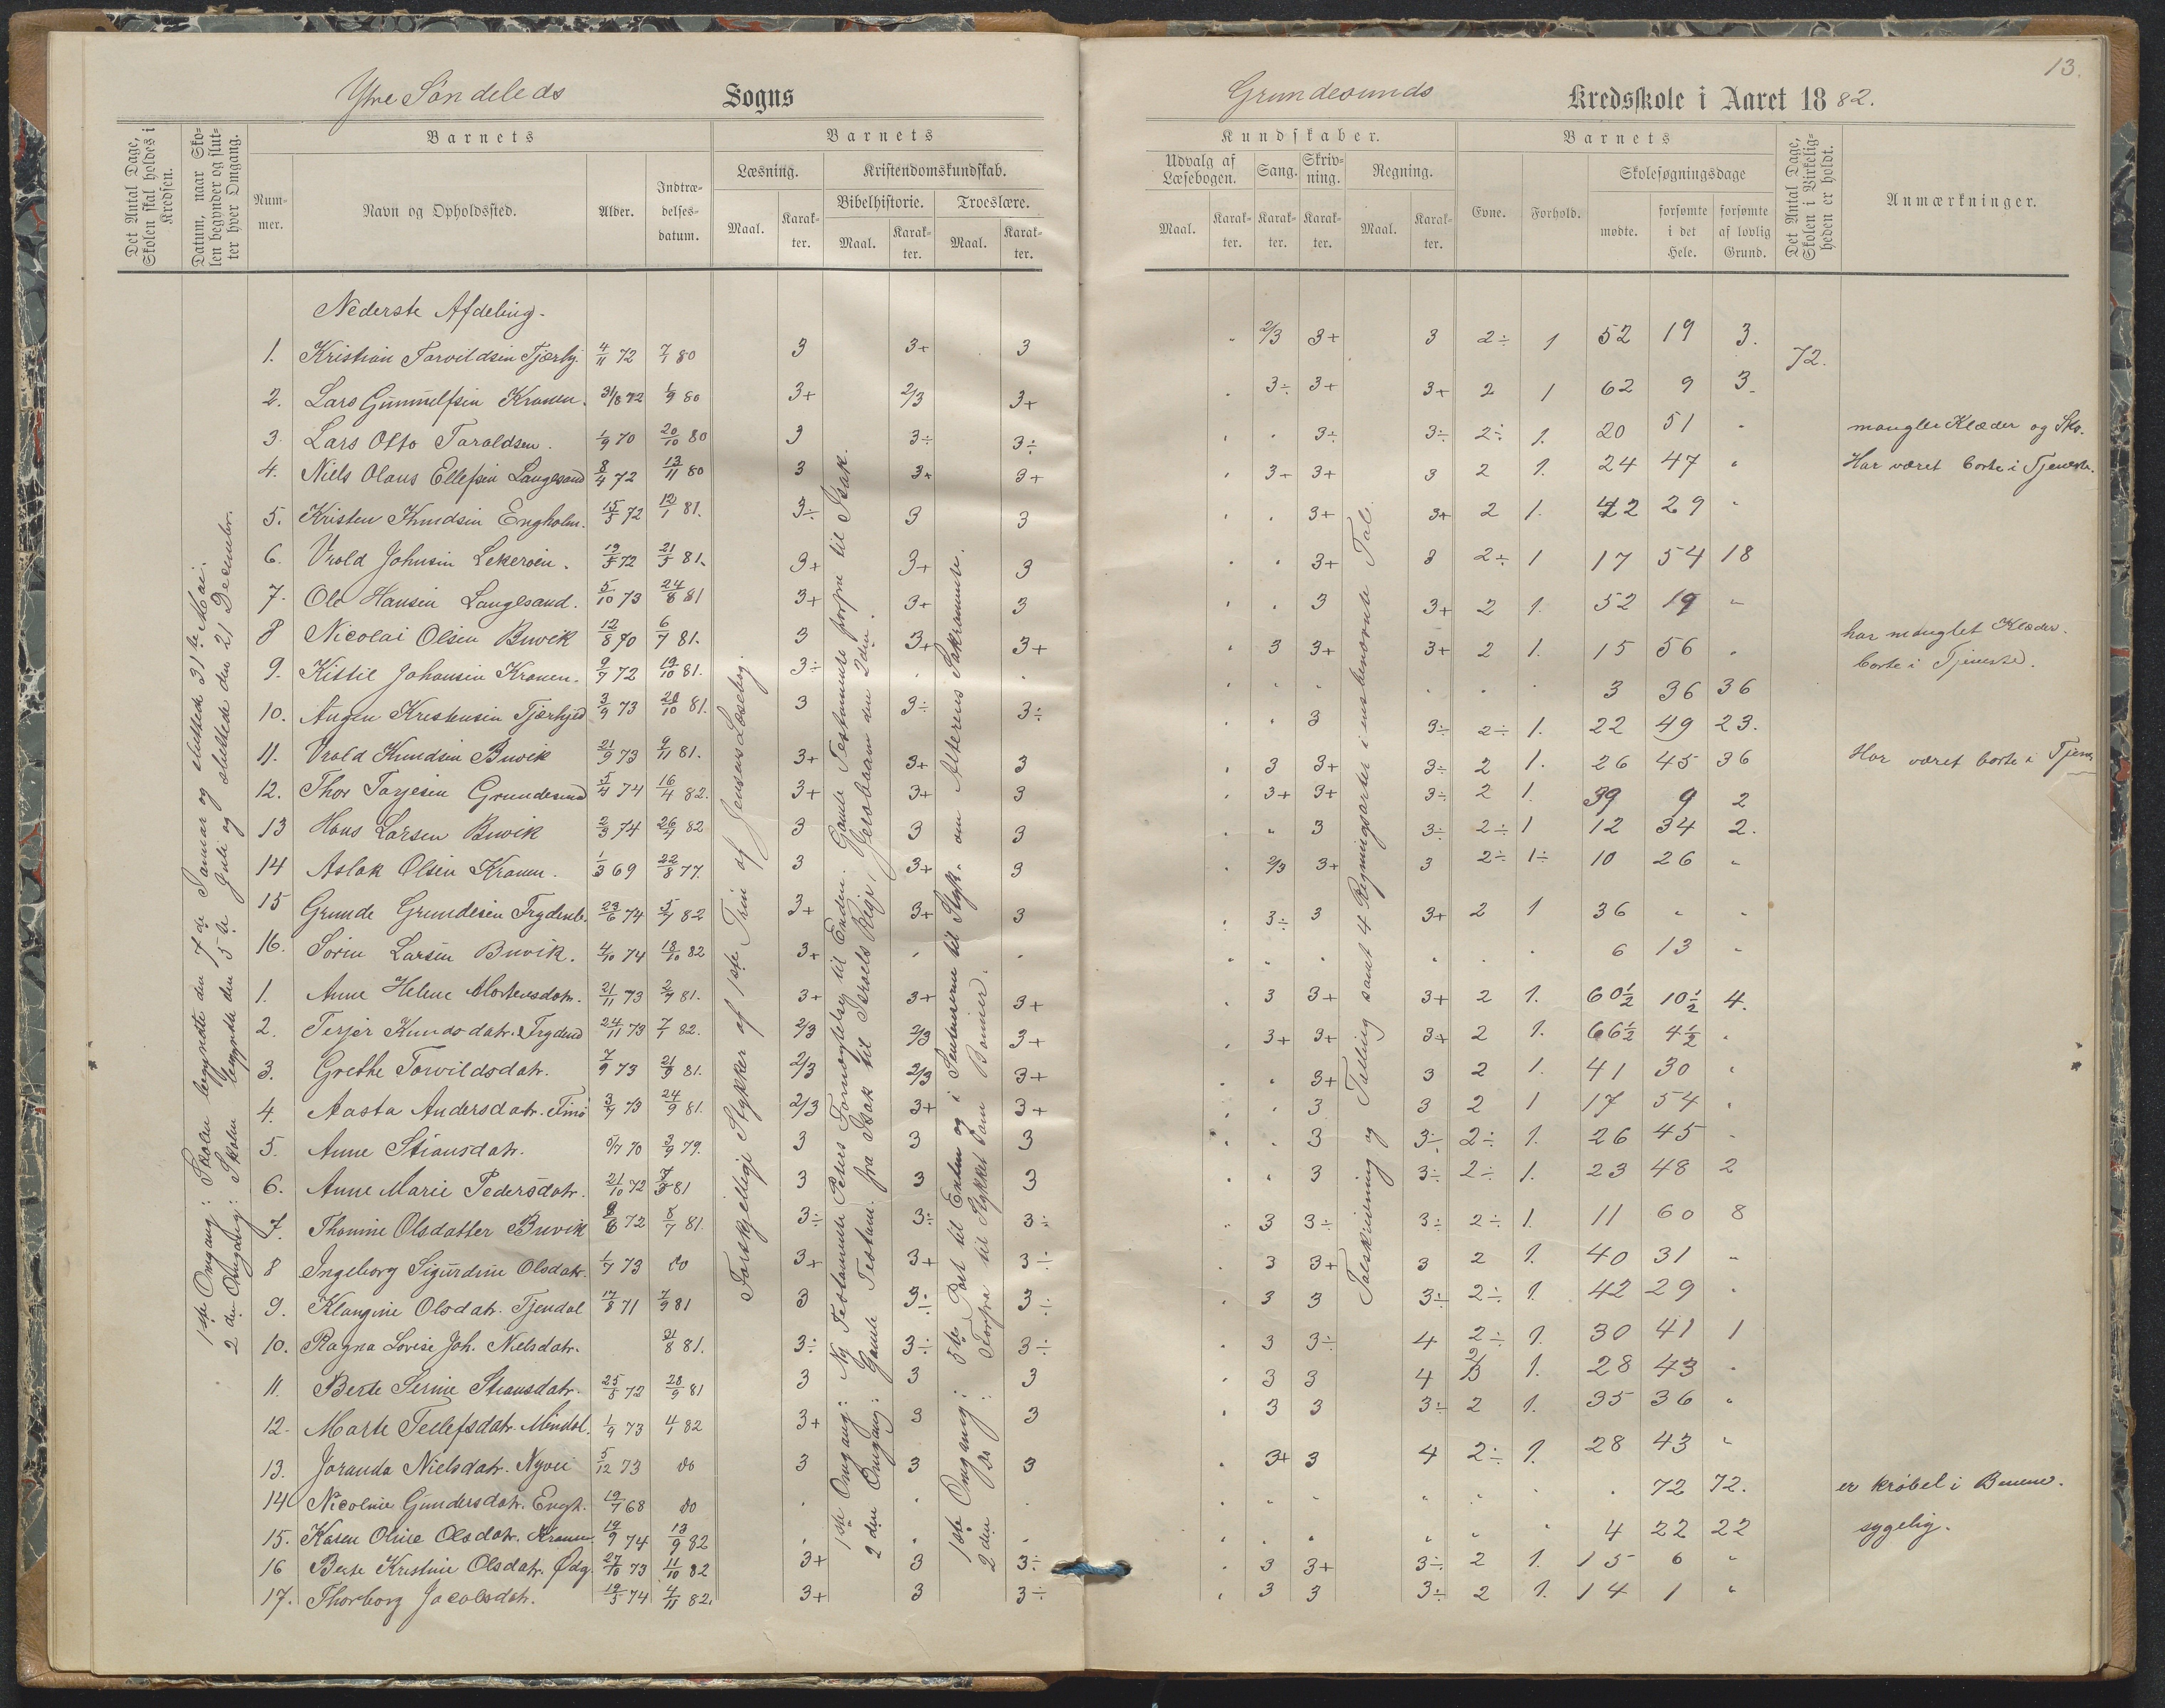 13.
Ytre Söndeleds Sogns
Grundesunds Kredsskole i Aaret 1882.
Det Antal Dage, Skolen skal holdes i Kredsen.
Datum, naar Skolen begynder og slutter hver Omgang.
Barnets
Nummer.
Navn og Opholdssted.
Alder.
Indtrædelsesdatum.
Barnets
Læsning.
Kristendomskundskab.
Bibelhistorie. Troeslære.
Maal. Karakter. Maal. Karakter. Maal. Karakter.
Kundskaber.
Udvalg af Læsebogen. Sang. Skrivning. Regning.
Maal. Karakter. Karakter. Karakter. Maal. Karakter.
Barnets
Evne. Forhold.
Skolesøgningsdage
mødte. forsømte i det Hele. forsømte af lovlig Grund.
Det Antal Dage, Skolen i Virkeligheden er holdt.
Anmærkninger.
1ste Omgang: Skolen begyndte den 7de Januar og sluttede 31te Mai.
2den Omgang: Skolen begyndte den 5te Juli og sluttede den 21 December.
Forskjellige Stykker af 1ste Trin af Jensens Læsebog.
1ste Omgang: Ny Testamente Peters Fornægtelse til Enden. Gamle Testamente forfra til Isak.
2den Omgang: Gamle Testam. fra Isak til Israels Rige, Jeroboam den 2den.
1ste Omgang: 5te Part til Enden og i Sentenserne til Styk. om Alterens Sakramente.
2den Do: Forfra til Stykket om Bönnen.
Talskrivning og Tælling samt 4 Regningsarter i ensbenævnte Tal.
Nederste Afdeling.
1. Kristian Torvildsen Tjærbj. 4/11 72 7/1 80 3 3+ 3 " 2/3 3+ 3 2÷ 1 52 19 3. 72.
2. Lars Gunnulfsen Kranen. 31/8 72 1/9 80 3+ 2/3 3+ " 3÷ 3+ 3+ 2 1 62 9 3
3. Lars Otto Taraldsen. 1/9 70 20/10 80 3 3÷ 3÷ " " 3÷ 3÷ 2÷ 1. 20 51 " mangler Klæder og Sko.
4. Niels Olaus Ellefsen Langesand 8/4 72 13/11 80 3 3+ 3+ " 3+ 3+ 3 2 1. 24 47 " Har været borte i Tjeneste.
5. Kristen Knudsen Engholm. 15/5 72 12/1 81. 3÷ 3 3 " " 3+ 3+ 2 1. 42 29 "
6. Vrold Johnsen Lekeröen. 19/5 72 21/5 81. 3+ 3+ 3 " " 3+ 3 2÷ 1 17 54 18
7. Ole Hansen Langesand. 5/10 73 24/8 81 3+ 3+ 3 " " 3 3+ 2 1. 52 19 "
8 Nicolai Olsen Buvik 12/8 70 6/7 81. 3 3+ 3+ " 3 3+ 3+ 2 1. 15 56 " har manglet Klæder. borte i Tjeneste.
9. Kittil Johansen Kranen. 9/7 72 19/10 81. 3÷ " " " " " " " " 3 36 36
10. Augen Kristensen Tjærbjed 3/9 73 28/10 81. 3 3÷ 3÷ " " 3 3÷ 2÷ 1. 22 49 23.
11. Vrold Knudsen Buvik 21/9 73 9/11 81. 3+ 3+ 3 " 3 3+ 3÷ 2 1. 26 45 36 Har været borte i Tjene
12. Thor Tarjesen Grundesund 5/4 74 16/4 82. 3+ 3+ 3 " 3+ 3+ 3÷ 2 1. 39 9 2
13 Hans Larsen Buvik 2/3 74 26/9 82 3 3 3 " " 3 3÷ 2÷ 1 12 34 2.
14 Aslak Olsen Kranen. 1/3 69 22/8 77. 3 3+ 3 " 2/3 3+ 3 2÷ 1÷ 10 26 "
15 Grunde Grundesen Trydenb. 23/6 74 5/7 82 3+ 3+ 3 " 3÷ 3 3+ 2 1 36 " "
16. Sören Larsen Buvik. 4/10 74 18/10 82 3+ " " " " " " " " 6 13 "
1. Anne Helene Mortensdatr. 21/11 73 2/7 81. 3+ 3+ 3+ " 3 3+ 3+ 2 1. 60½ 10½ 4.
2. Terjer Knudsdatr. Trydend 24/11 73 7/1 82. 2/3 2/3 3+ " 3+ 3+ 3+ 2 1. 66½ 4½ "
3. Grethe Torvildsdatr. 7/9 73 21/9 81. 2/3 2/3 3+ " " 3+ 3 2 1. 41 30 "
4. Aasta Andersdatr. Finö 3/4 73 24/9 81. 2/3 3+ 3+ " " 3 3 2 1 17 54 "
5. Anne Stiansdatr. 5/7 70 3/9 79. 3 3 3 " " 3 3÷ 2÷ 1. 26 45 "
6. Anne Marie Pedersdatr. 21/10 72 7/5 81 3 3 3 " " 3 3÷ 2÷ 1. 23 48 2
7. Thomine Olsdatter Buvik 8/6 72 5/7 81. 3÷ 3÷ 3÷ " 3 3÷ 3÷ 2÷ 1. 11 60 8
8 Ingeborg Sigurdine Olsdatr. 1/7 73 do 3+ 3+ 3÷ " 3 3+ 3 2 1. 40 31 "
9. Klangine Olsdatr. Tjendal 17/8 71 7/9 81 3 3÷ 3÷ " 3 3 3÷ 2÷ 1. 42 29 "
10. Ragna Lovise Joh. Nielsdatr. 31/8 81. 3÷ 3÷ 3÷ " 3 3÷ 4 2÷ 1. 30 41 1
11. Berte Serine Stiansdatr. 25/5 72 28/9 81 3 3 3 " 3 3 4 2/3 1. 28 43 "
12. Marte Tellefsdatr. Mindal. 1/9 73 4/1 82 3+ 3 3 " 3 3 3÷ 2 1. 35 36 "
13. Joranda Nielsdatr. Nyvei 5/12 73 do 3 3 3 " 3+ 3 4 2÷ 1. 28 43 "
14 Nicoline Gundersdatr. Engh. 19/7 68 do " " " " " " " " " " 72 72. er kröbel i Benene.
15. Karen Oline Olsdatr. Kranen 19/9 74 13/9 82 " " " " " " " " " 4 22 22 sygelig.
16 Berte Kristine Olsdatr. Ødg 27/10 73 11/10 82 3+ 3 3÷ " 3 3+ 3÷ 2 1. 15 6 "
17. Thorborg Jacobsdatr. 19/5 74 4/11 82. 3+ 3 3÷ " 3 3 3÷ 2 1. 14 1 "